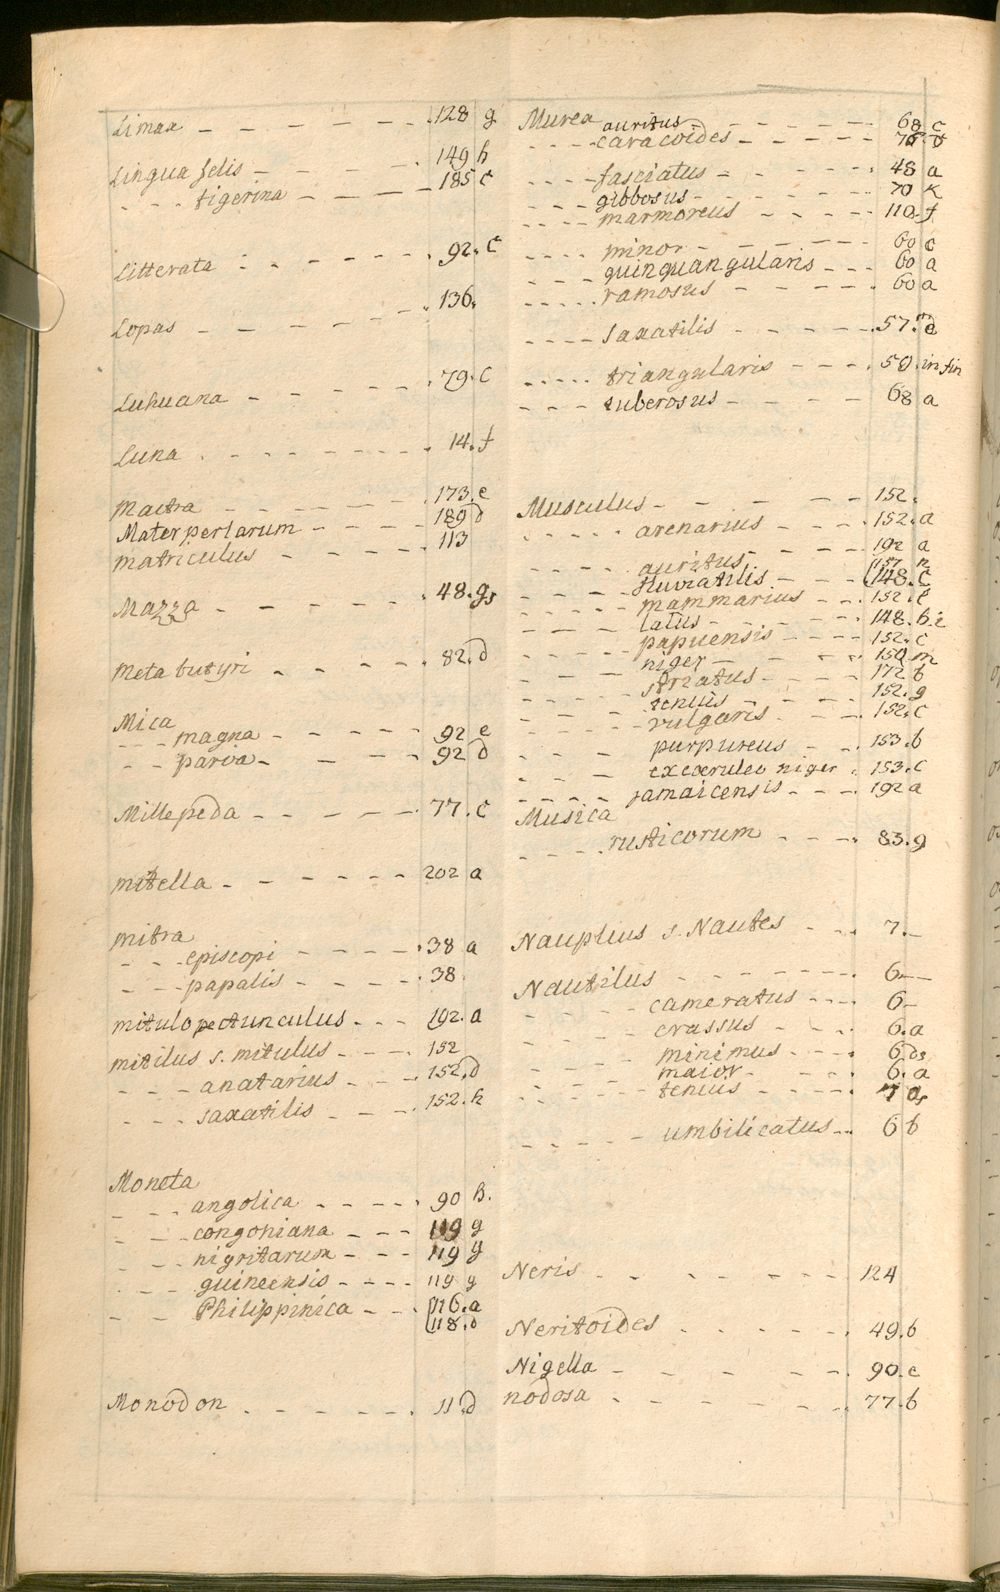 Limax - - - - - - 128 g
Lingua felis - - - - 149 h
- - - tigerina - - - - 185 c
Litterata - - - - - - 92. c
Lopas - - - - - - 136.
Luhuana - - - - - 79. c
Luna - - - - - - - 14. f
Mactra - - - - - 173. e
Mater perlarum - - - - 189 d
matriculus - - - - - 113
Mazza - - - - - - 48. g
Meta butyri - - - - 82. d
Mica
- - - magna - - - - - 92 e
- - parva - - - - - 92 d
Millepeda - - - - - - 77. c
mitella - - - - - - 202 a
mitra
- - - episcopi - - - - 38 a
- - - papalis - - - - - 38
mitulo pectunculus - - - 192. a
mitilus s. mitulus - - - - 152
- - - anatarius - - - - 152. d
- - - saxatilis - - - - 152. h
Moneta
- - - angolica - - - - - 90 h.
- - - congoniana - - - 119 g
- - - nigritarum - - - 119 g
- - - guineensis - - - - 119 g
- - Philippinica - - - 116. a
118.
Monodon - - - - - - 11. d
Murex auritus - - - - - 68 c
- - - - caracoides - - - - -
- - - - fasciatus - - - - - 48 a
- - - - gibbosus - - - - - 70 K
- - - - marmoreus - - - - - 110. f
- - - - minor - - - - - - 60 c
- - - quinquangularis - - - 60 a
- - - - - ramosus - - - - - 60 a
- - - - saxatilis - - - - - - 57.
- - - - - triangularis - - - - 59. in fin
- - - tuberosus - - - - - 68 a
Musculus - - - - - 152.
- - - - - arenarius - - - - - 152. a
- - - - - auritus - - - - - 192 a
157. n
- - - - fluviatilis - - - - 148. c
- - - - - mammarius - - - 152. l
- - - latus - - - - - 148. b. i
- - - - papuensis - - - - 152. c
- - - niger - - - - 150 m
- - - - striatus - - - - - 172 b
- - - - tenuis - - - - 152. g
- - - - vulgaris - - - - 152. c
- - - purpureus - - - 153. b
- - - - ex cæruleo niger - 153. c
- - - - jamaicensis - - - 192 a
Musica
- - - - rusticorum - - - - 83. g
Nauplius s. Nautes - - - 7. -
Nautilus - - - - - - - 6 -
- - - cameratus - - - - 6 -
- - - crassus - - - - 6. a
- - - minimus - - - - 6
- - - maior - - - - - 6. a
- - - - tenuis - - - - -
- - - - - umbilicatus - - 6 b
Neris - - - - - - - 124
Neritoides - - - - - 49. b
Nigella - - - - - - 90. e
nodosa - - - - - - 77. b